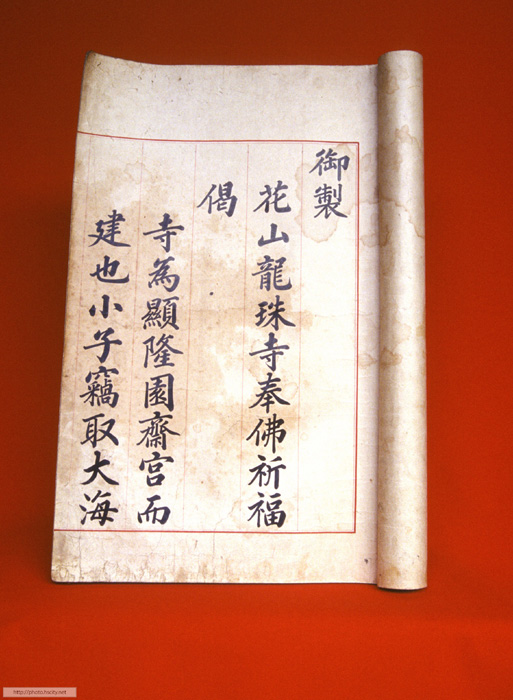 御製
花山龍珠寺奉佛祈福
偈
寺為顯隆園齋宮而
建也小子竊取大海
http://photo.hscity.net